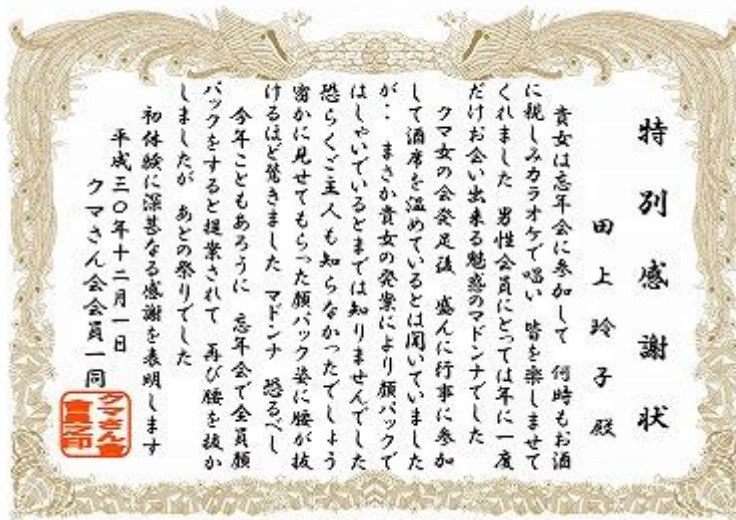 特別感謝状
田上玲子殿
貴女は忘年会に参加して 何時もお酒
に親しみカラオケで唱い 皆を楽しませて
くれました 男性会員にとっては年に一度
だけお会い出来る魅惑のマドンナでした
クマ女の会発足後 盛んに行事に参加
して酒席を温めているとは聞いていました
が‥ まさか貴女の発案により顔パックで
はしゃいでいるとまでは知りませんでした
恐らくご主人も知らなかったでしょう
密かに見せてもらった顔パック姿に腰が抜
けるほど驚きました マドンナ 恐るべし
今年こともあろうに 忘年会で全員顔
パックをすると提案されて 再び腰を抜か
しましたが あとの祭りでした
初体験に深甚なる感謝を表明します
平成三〇年十二月一日
クマさん会会員一同
クマさん會
會員之印